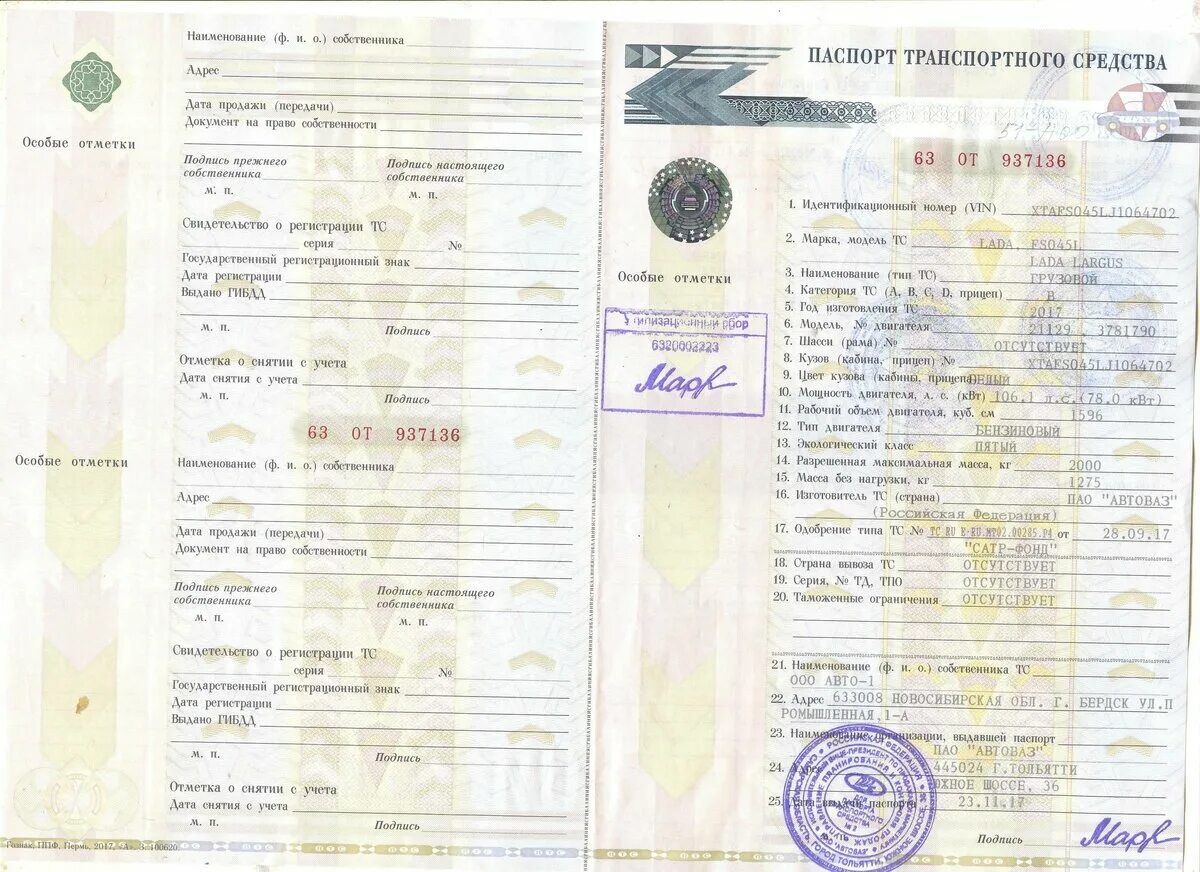 Особые отметки
Наименование (ф. и. о.) собственника
Адрес
Дата продажи (передачи)
Документ на право собственности
Подпись прежнего собственника
Подпись настоящего собственника
м. п.
м. п.
Свидетельство о регистрации ТС
серия №
Государственный регистрационный знак
Дата регистрации
Выдано ГИБДД
м. п. Подпись
Отметка о снятии с учета
Дата снятия с учета
м. п. Подпись
63 ОТ 937136
Особые отметки
Наименование (ф. и. о.) собственника
Адрес
Дата продажи (передачи)
Документ на право собственности
Подпись прежнего собственника
Подпись настоящего собственника
м. п.
м. п.
Свидетельство о регистрации ТС
серия №
Государственный регистрационный знак
Дата регистрации
Выдано ГИБДД
м. п. Подпись
Отметка о снятии с учета
Дата снятия с учета
м. п. Подпись
ППФ, Пермь, 2017,
ПАСПОРТ ТРАНСПОРТНОГО СРЕДСТВА
63 ОТ 937136
Особые отметки
сбор
6320002223
1. Идентификационный номер (VIN) XTAFS045LJ1064702
2. Марка, модель ТС LADA, FS045L
LADA LARGUS
3. Наименование (тип ТС) ГРУЗОВОЙ
4. Категория ТС (A, B, C, D, прицеп) B
5. Год изготовления ТС 2017
6. Модель, № двигателя 21129 , 3781790
7. Шасси (рама) № ОТСУТСТВУЕТ
8. Кузов (кабина, прицеп) № XTAFS045LJ1064702
9. Цвет кузова (кабины, прицепа) БЕЛЫЙ
10. Мощность двигателя, л. с. (кВт) 106.1 л.с.(78.0 кВт)
11. Рабочий объем двигателя, куб. см 1596
12. Тип двигателя БЕНЗИНОВЫЙ
13. Экологический класс ПЯТЫЙ
14. Разрешенная максимальная масса, кг 2000
15. Масса без нагрузки, кг 1275
16. Изготовитель ТС (страна) ПАО "АВТОВАЗ"
(Российская Федерация)
17. Одобрение типа ТС № ТС RU E-RU.МТ02.00285.Р4 от 28.09.17
"САТР-ФОНД"
18. Страна вывоза ТС ОТСУТСТВУЕТ
19. Серия, № ТД, ТПО ОТСУТСТВУЕТ
20. Таможенные ограничения ОТСУТСТВУЕТ
21. Наименование (ф. и. о.) собственника ТС
ООО АВТО-1
22. Адрес 633008 НОВОСИБИРСКАЯ ОБЛ. Г. БЕРДСК УЛ.П
РОМЫШЛЕННАЯ,1-А
23. Наименование организации, выдавшей паспорт
ПАО "АВТОВАЗ"
24. Адрес 445024 Г.ТОЛЬЯТТИ
ЮЖНОЕ ШОССЕ, 36
25. Дата выдачи паспорта 23.11.17
Подпись